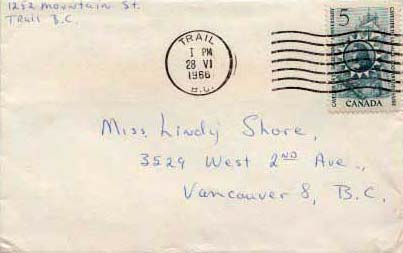 1252 Mountain St.
Trail B.C.
TRAIL
1 PM
28 VI
1966
B.C.
5
CANADA
Miss Lindy Shore,
3529 West 2ND Ave.,
Vancouver 8, B.C.